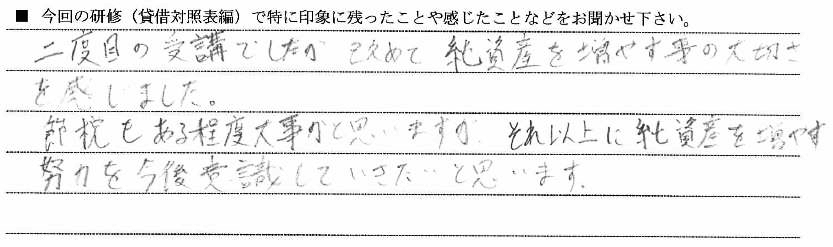 ■ 今回の研修（貸借対照表編）で特に印象に残ったことや感じたことなどをお聞かせ下さい。
二度目の受講でしたが 改めて 純資産を増やす事の大切さ
を感じました。
節税もある程度大事かと思いますが、それ以上に純資産を増やす
努力を今後意識していきたいと思います。